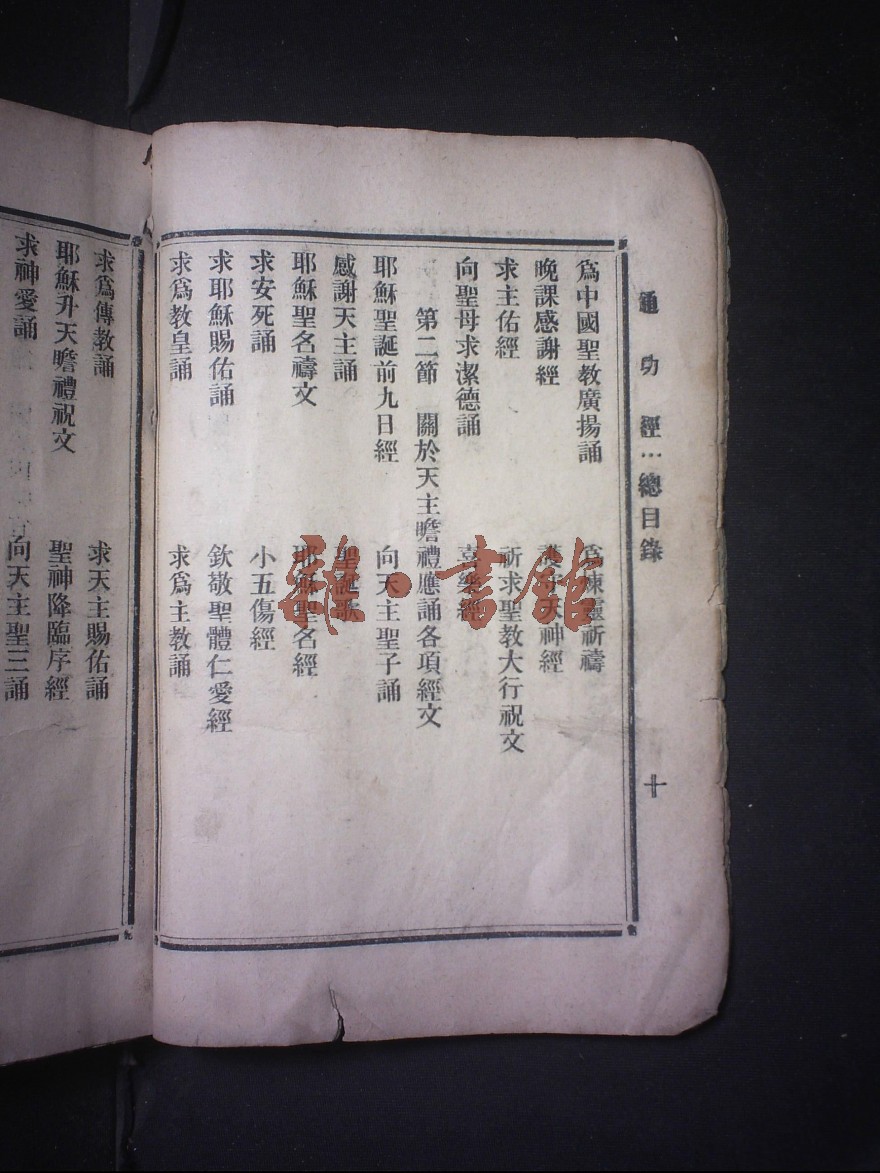 通功經⋯總目錄
十
爲中國聖教廣揚誦　爲煉靈祈禱
晚課感謝經　護守天神經
求主佑經　祈求聖教大行祝文
向聖母求潔德誦　喜樂經
第二節　關於天主瞻禮應誦各項經文
耶穌聖誕前九日經　向天主聖子誦
感謝天主誦　聖誕歌
耶穌聖名禱文　耶穌聖名經
求安死誦　小五傷經
求耶穌賜佑誦　欽敬聖體仁愛經
求爲教皇誦　求爲主教誦
求爲傳教誦　求天主賜佑誦
耶穌升天瞻禮祝文　聖神降臨序經
求神愛誦　向天主聖三誦
雜·書館